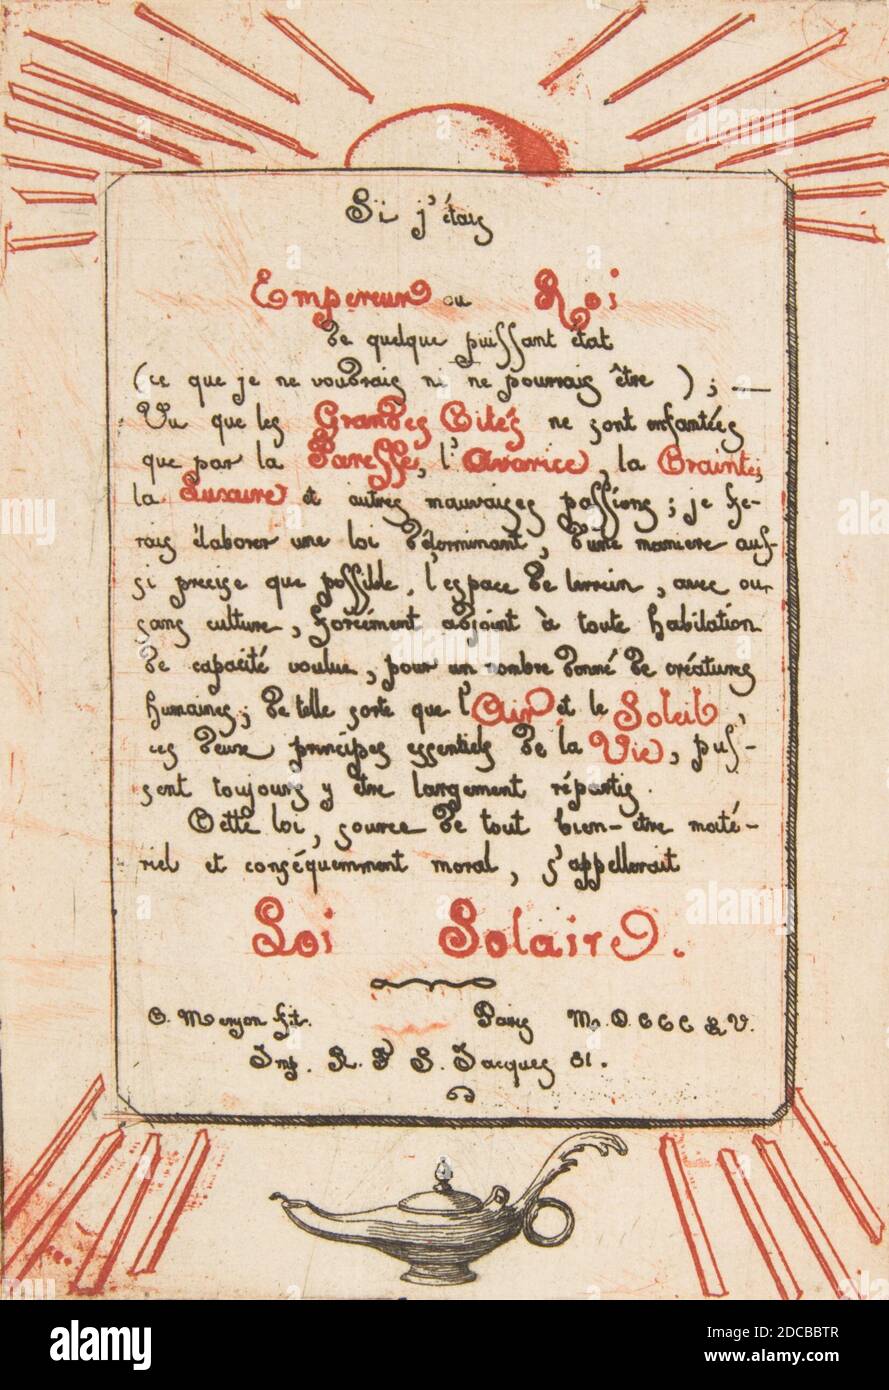 Si j'étais
Empereur ou Roi
de quelque puissant état
(ce que je ne voudrais ni ne pourrais être ) ; —
Vu que les Grandes Cités ne sont enfantées
que par la Paresse, l'Avarice, la Crainte,
la Luxure et autres mauvaises passions ; je fe-
rais élaborer une loi déterminant, d'une manière aus-
si précise que possible, l'espace de terrein, avec ou
sans culture, forcément adjoint à toute habitation
de capacité voulue, pour un nombre donné de créatures
humaines ; de telle sorte que l'Air et le Soleil,
ces deux principes essentiels de la Vie, puis-
sent toujours y être largement répartis.
Cette loi, source de tout bien-être maté-
riel et conséquemment moral, s'appellerait
Loi Solaire.
C. Meryon fit. Paris M. D C C C L V.
Imp. R. F S. Jacques 81.
alamy
Image ID: 2DCBBTR
www.alamy.com